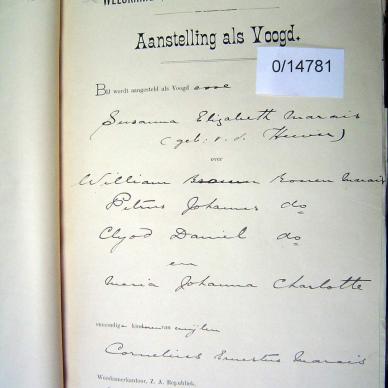 Aanstelling als Voogd.
0/14781
BIJ wordt aangesteld als Voogd
Susanna Elizabeth Marais
(geb: v. d. Heever)
over
William Bosman Marais
Petrus Johannes do
Clyod Daniel do
en
Maria Johanna Charlotte
minderjarige kinderen van wijlen
Cornelius Ernestus Marais
Weeskamerkantoor, Z. A. Republiek,